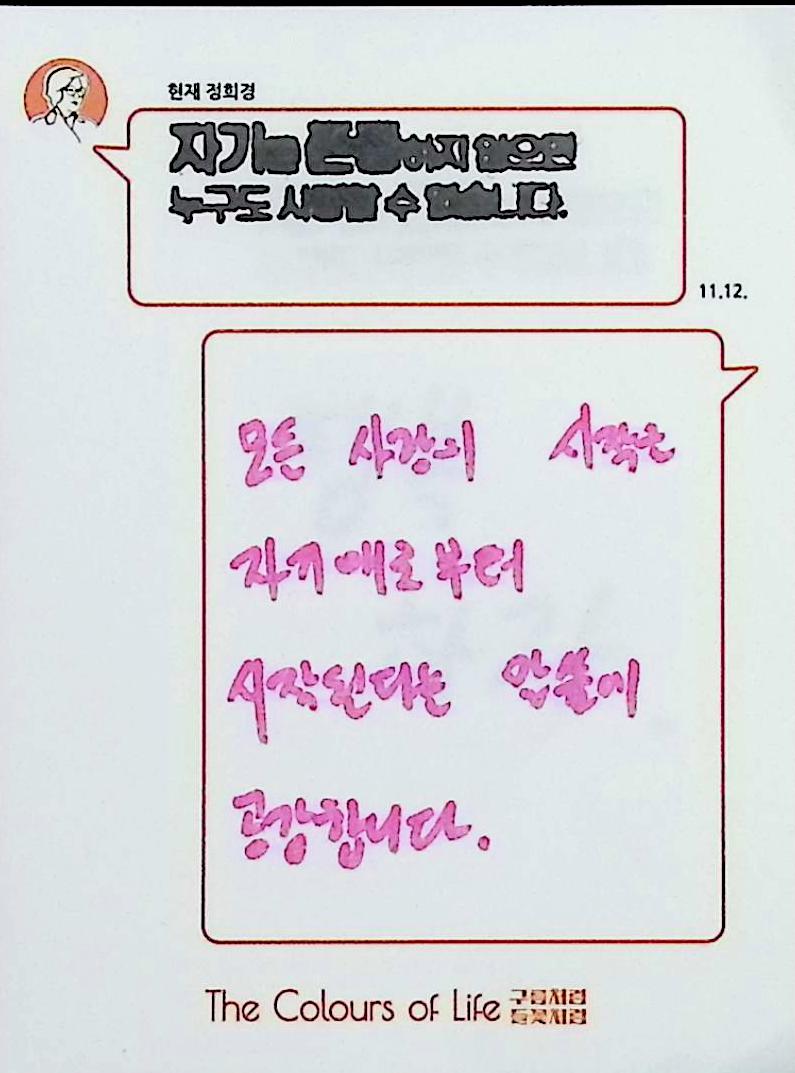 현재 정희경
자기를 존중하지 않으면
누구도 사랑할 수 없습니다.
11.12.
모든 사랑의 시작은
자기애로부터
시작된다는 말씀에
공감합니다.
The Colours of Life 구름처럼
들꽃처럼